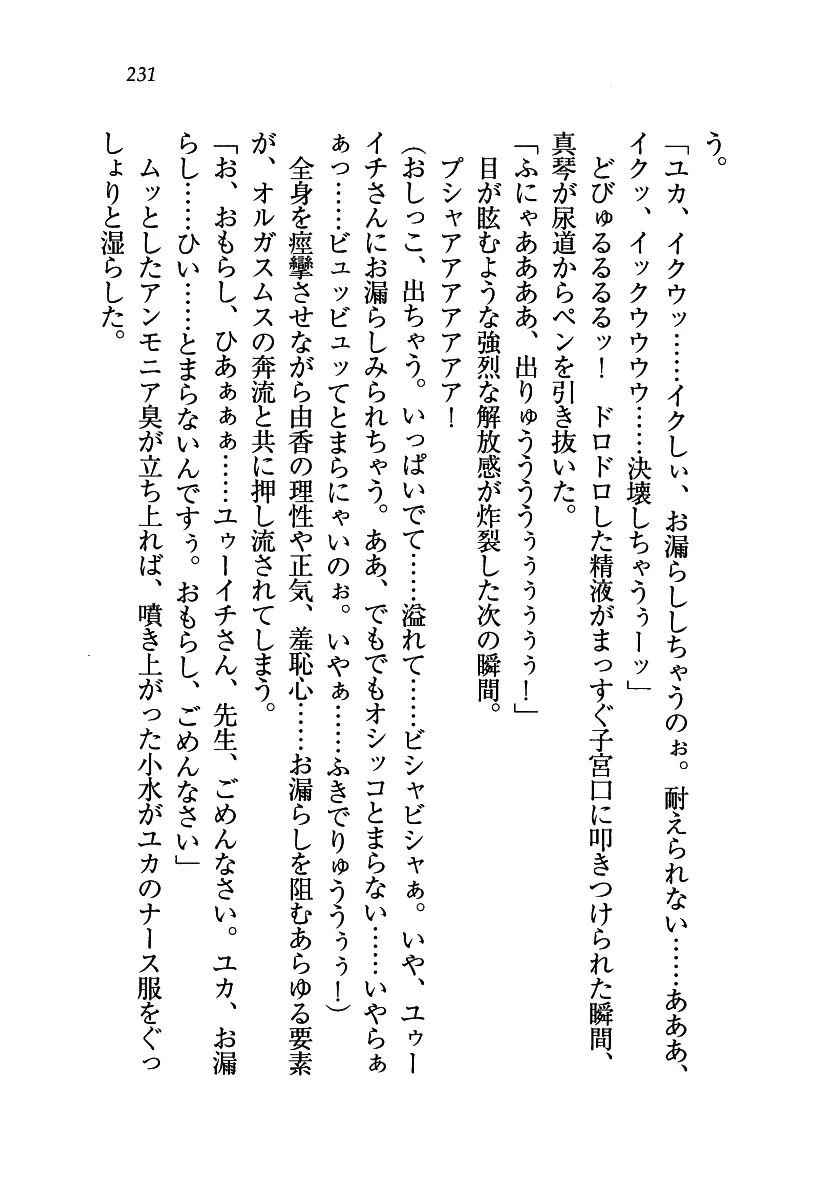 231
う。
「ユカ、イクウッ……イクしぃ、お漏らししちゃうのぉ。耐えられない……あああ、
イクッ、イックウウウウ……決壊しちゃうぅーッ」
どびゅるるるるッ！　ドロドロした精液がまっすぐ子宮口に叩きつけられた瞬間、
真琴が尿道からペンを引き抜いた。
「ふにゃああああ、出りゅうううううぅぅぅぅぅ！」
目が眩むような強烈な解放感が炸裂した次の瞬間。
プシャアアアアアアア！
（おしっこ、出ちゃう。いっぱいでて……溢れて……ビシャビシャぁ。いや、ユゥー
イチさんにお漏らしみられちゃう。ああ、でもでもオシッコとまらない……いやらぁ
ぁっ……ビュッビュッてとまらにゃいのぉ。いやぁ……ふきでりゅううぅぅ！）
全身を痙攣させながら由香の理性や正気、羞恥心……お漏らしを阻むあらゆる要素
が、オルガスムスの奔流と共に押し流されてしまう。
「お、おもらし、ひあぁぁぁ……ユゥーイチさん、先生、ごめんなさい。ユカ、お漏
らし……ひい……とまらないんですぅ。おもらし、ごめんなさい」
ムッとしたアンモニア臭が立ち上れば、噴き上がった小水がユカのナース服をぐっ
しょりと湿らした。